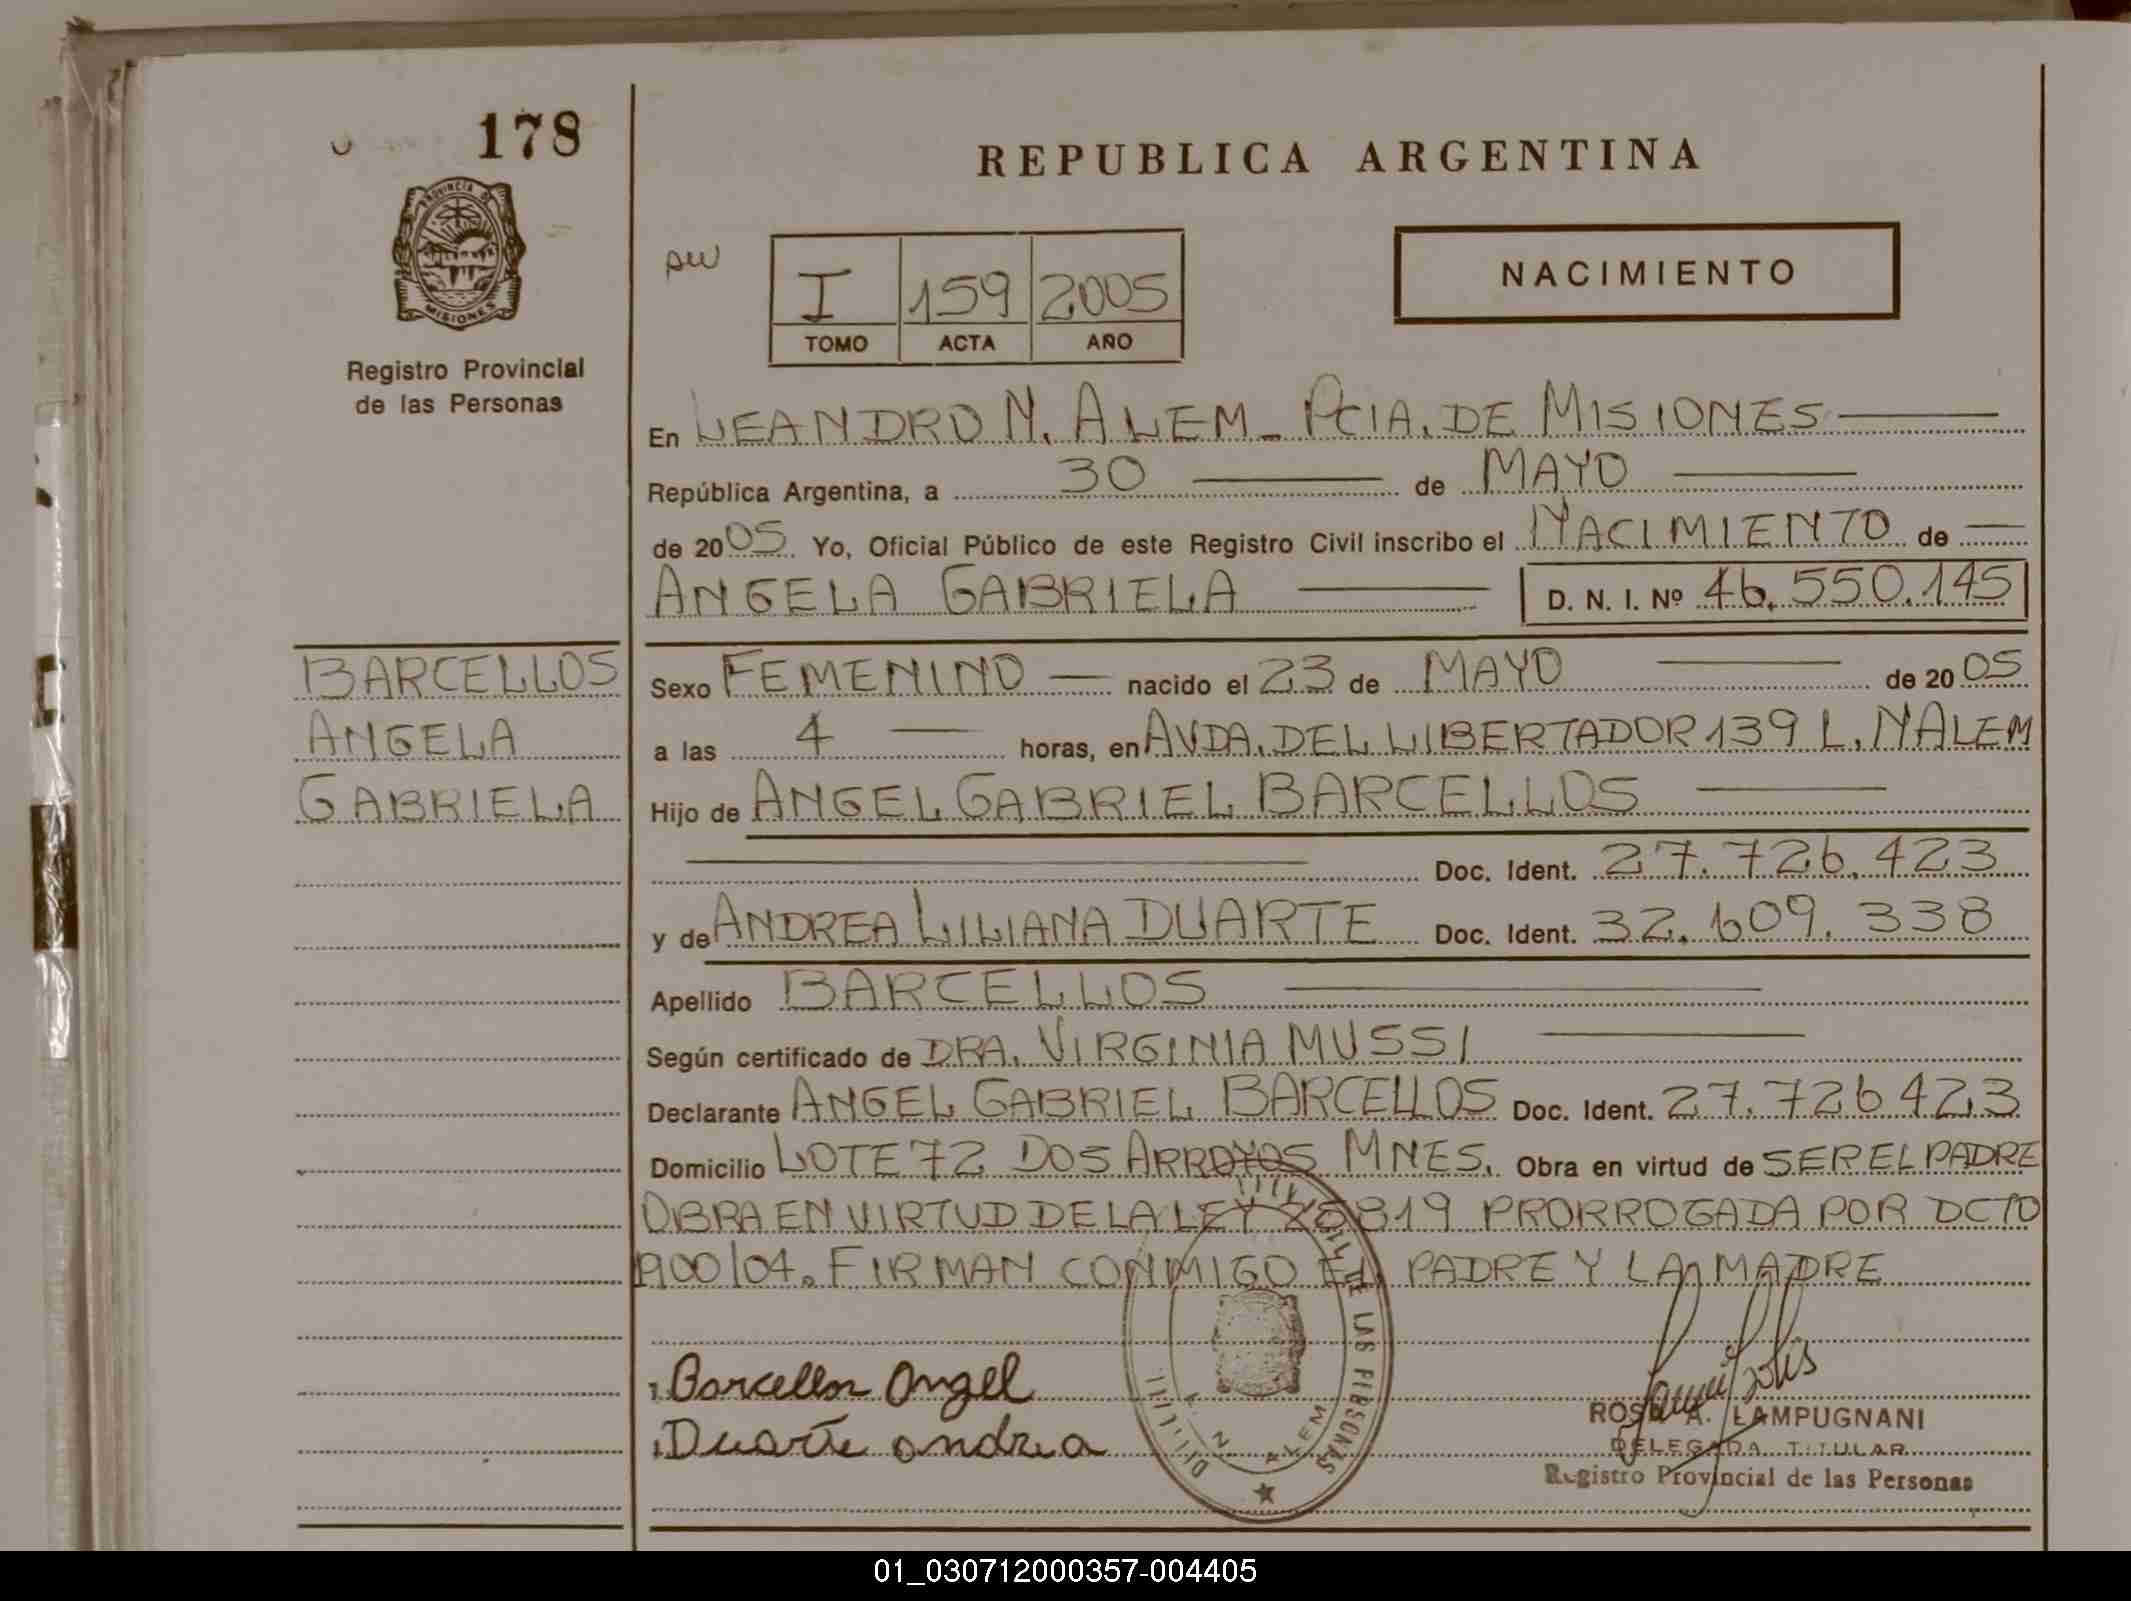 178
PROVINCIA DE
MISIONES
Registro Provincial
de las Personas
REPUBLICA ARGENTINA
I 159 2005
TOMO ACTA AÑO
NACIMIENTO
En LEANDRO N. ALEM - PCIA. DE MISIONES
República Argentina, a 30 de MAYO
de 2005 Yo, Oficial Público de este Registro Civil inscribo el NACIMIENTO de
ANGELA GABRIELA D. N. I. Nº 46.550.145
BARCELLOS
ANGELA
GABRIELA
Sexo FEMENINO nacido el 23 de MAYO de 2005
a las 4 horas, en AVDA. DEL LIBERTADOR 139 L. N ALEM
Hijo de ANGEL GABRIEL BARCELLOS
Doc. Ident. 27.726.423
y de ANDREA LILIANA DUARTE Doc. Ident. 32.609.338
Apellido BARCELLOS
Según certificado de DRA. VIRGINIA MUSSI
Declarante ANGEL GABRIEL BARCELLOS Doc. Ident. 27.726423
Domicilio LOTE 72 DOS ARROYOS MNES. Obra en virtud de SER EL PADRE
OBRA EN VIRTUD DE LA LEY 25819 PRORROGADA POR DCTO
1900/04. FIRMAN CONMIGO EL PADRE Y LA MADRE
Barcellos Angel
Duarte andrea
DE LAS PERSONAS
N. ALEM
ROSA A. LAMPUGNANI
DELEGADA TITULAR
Registro Provincial de las Personas
01_030712000357-004405